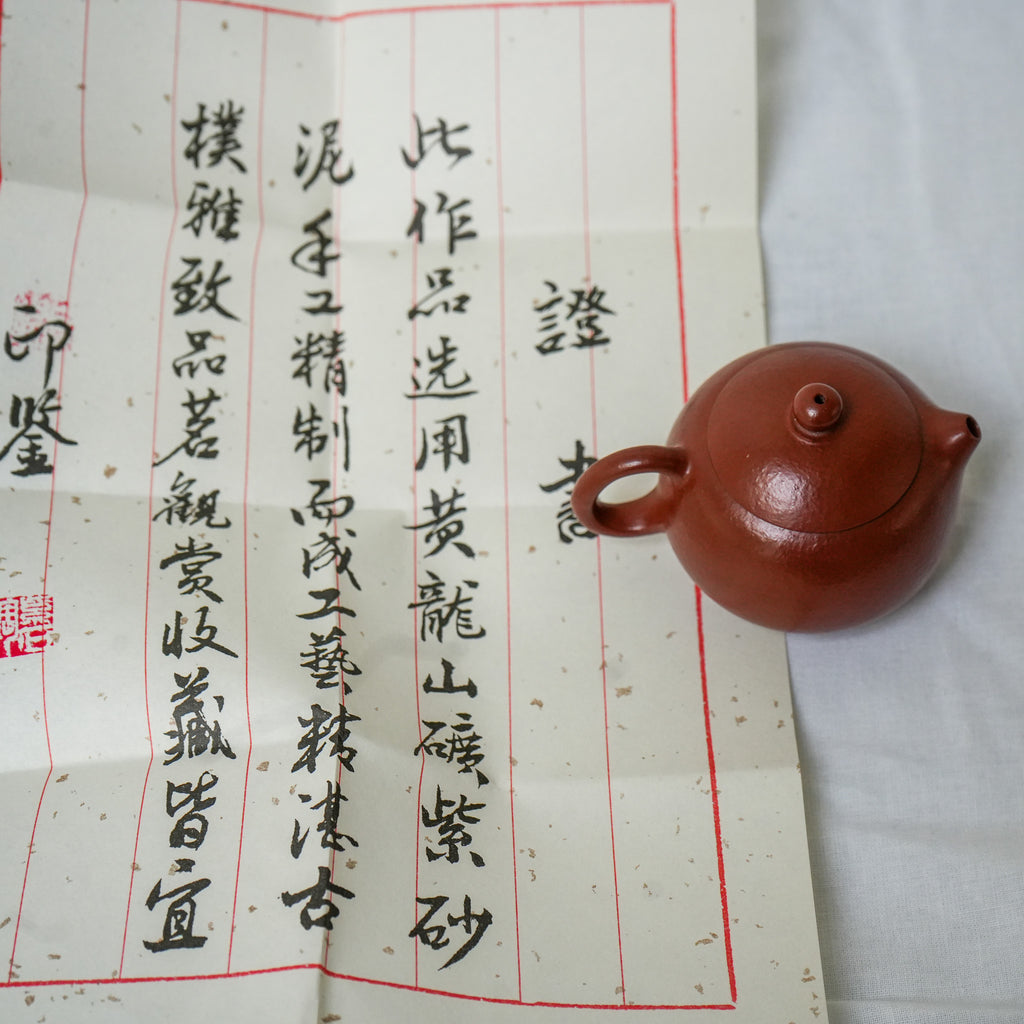 證書
此作品选用黃龍山礦紫砂
泥手工精制而成工藝精湛古
樸雅致品茗觀赏收藏皆宜
印鉴